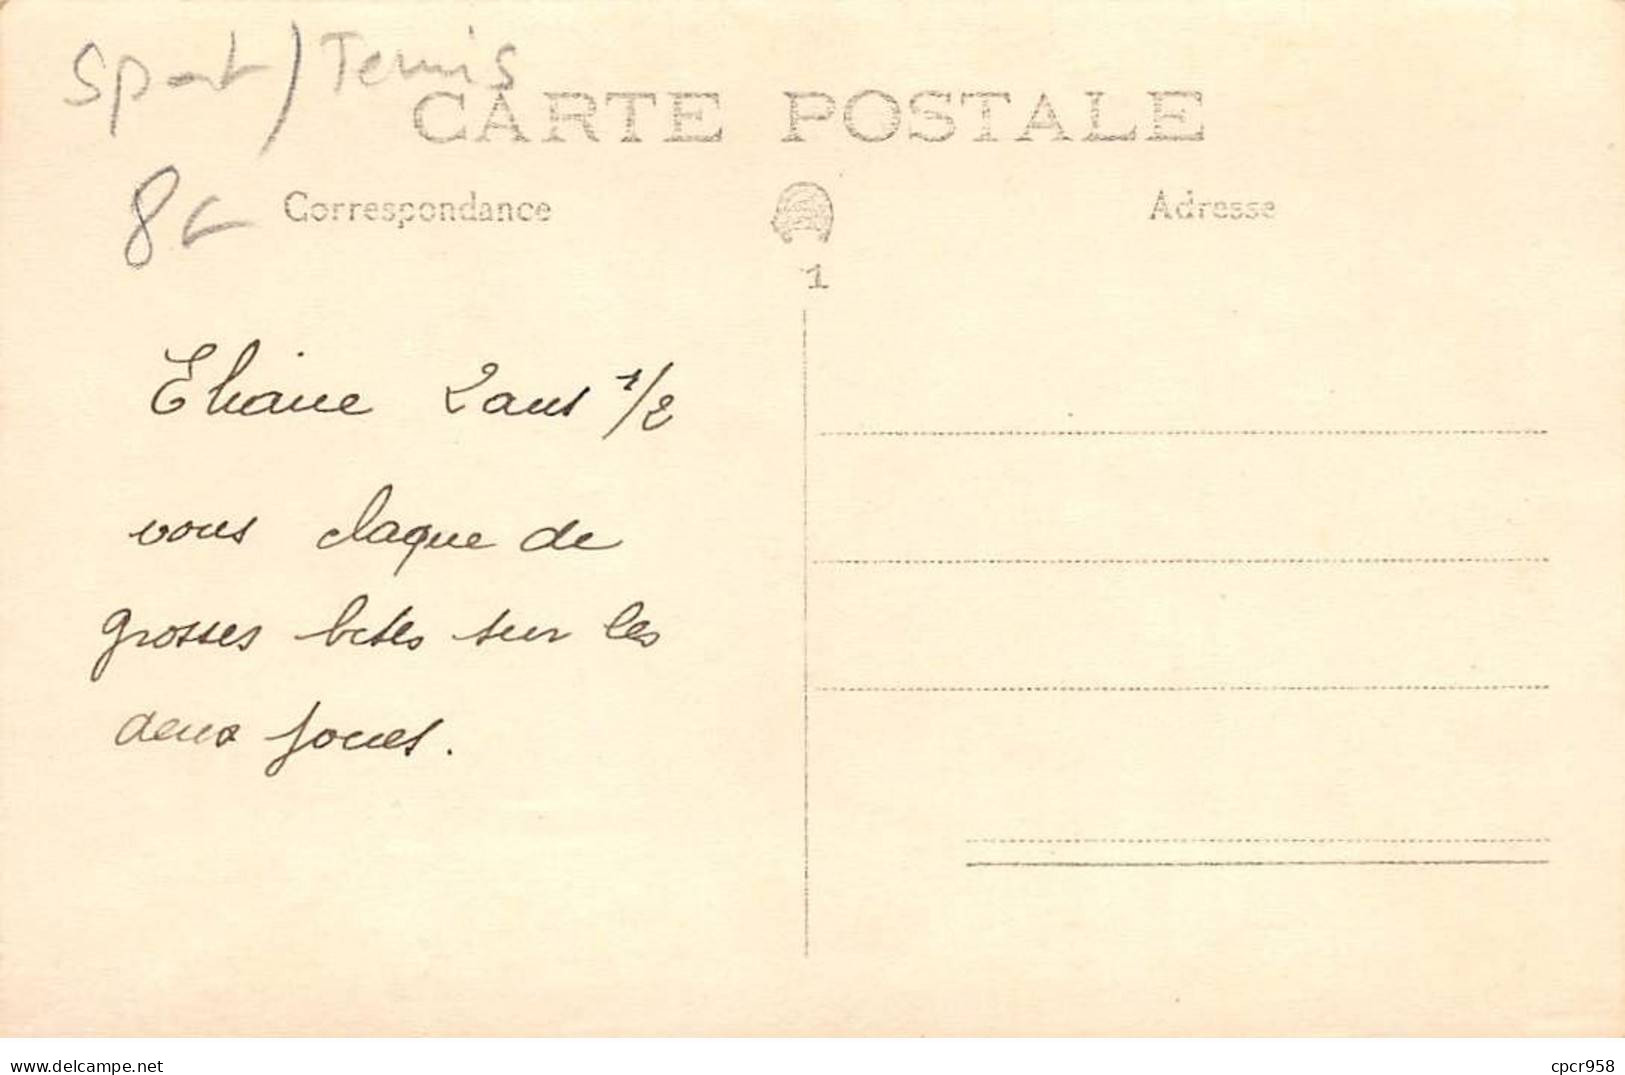 Sport / Tennis
CARTE POSTALE
8€
Correspondance
Adresse
1
Eliane 2 ans 1/2
vous claque de
grosses bises sur les
deux joues.
www.delcampe.net
cpcr958